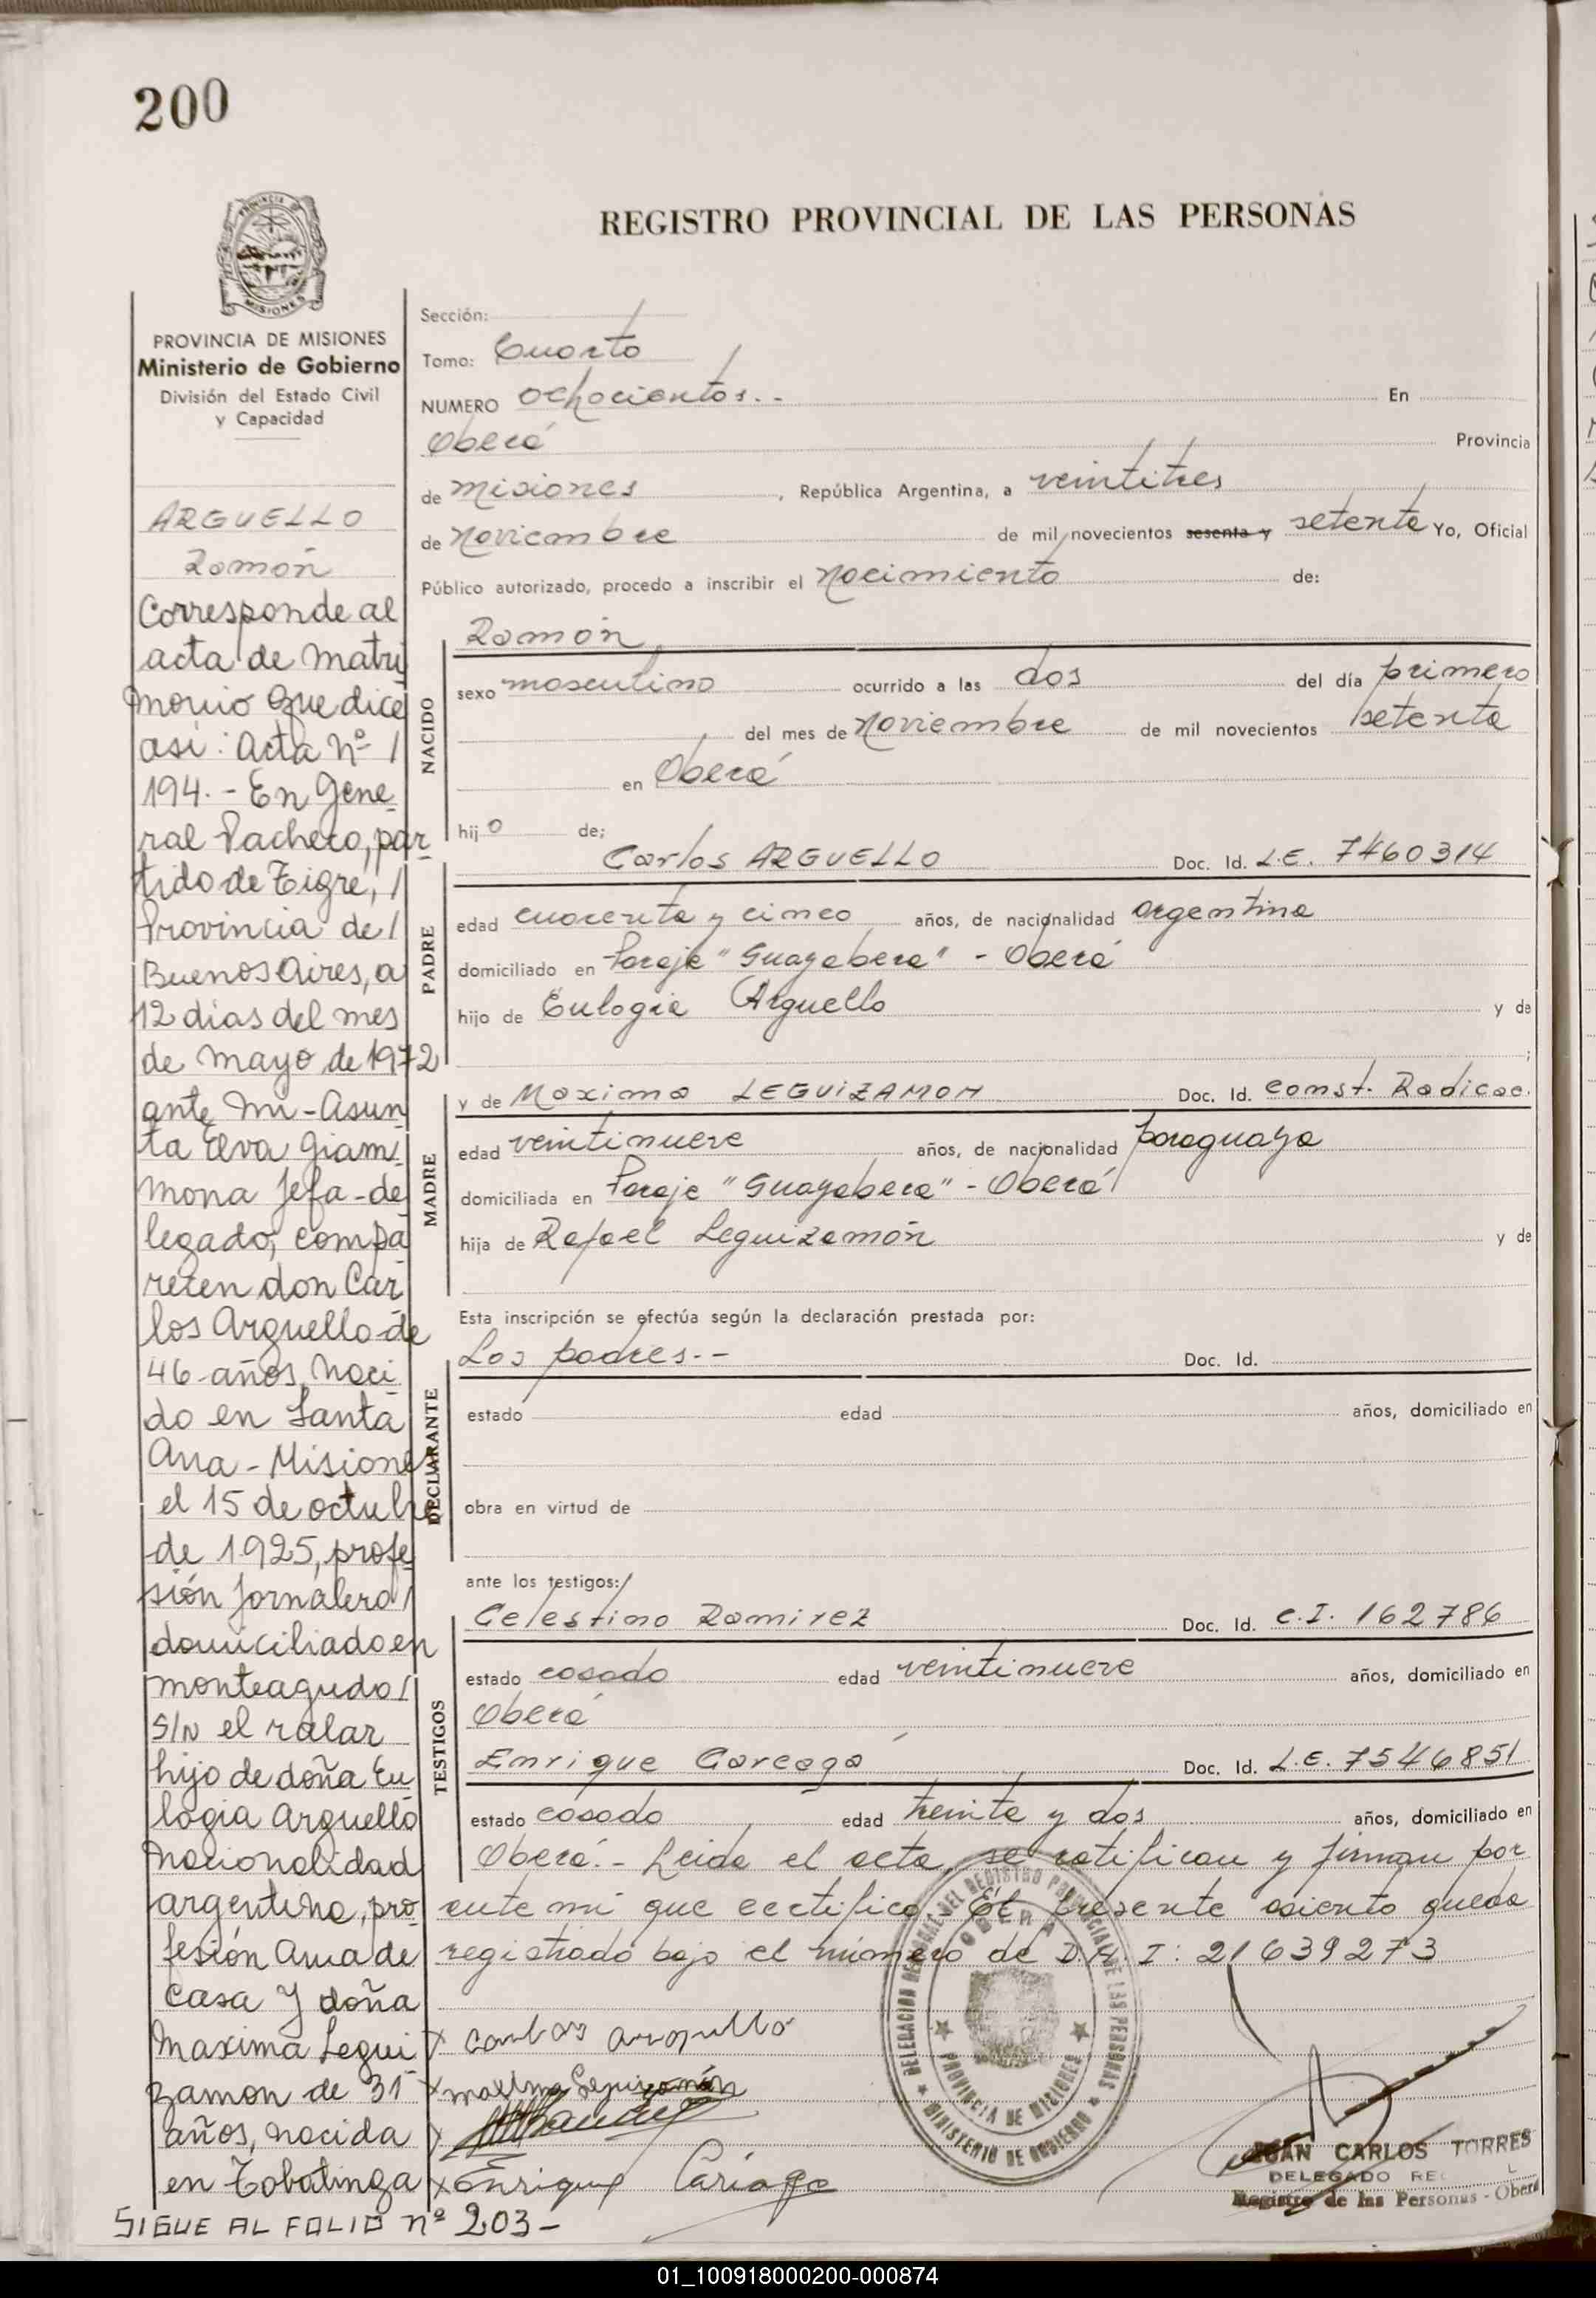 200
REGISTRO PROVINCIAL DE LAS PERSONAS
PROVINCIA DE MISIONES
Ministerio de Gobierno
División del Estado Civil
y Capacidad
ARGUELLO
Ramón
Corresponde al
acta de matri
monio que dice
asi: Acta nº /
194.- En Gene
ral Pacheco, par
tido de Tigre, /
Provincia de /
Buenos Aires, a
12 dias del mes
de mayo de 1972
ante mi - Asun
ta Elva Giam
mona Jefa-de
legado, compa
recen don Car
los Arguello de
46 años, naci
do en Santa
Ana - Misiones
el 15 de octubre
de 1925, profe
sión Jornalero /
domiciliado en
monteagudo /
S/N el talar
hijo de doña Eu
logia Arguello
Nacionalidad
argentina, pro
fesión Ama de
Casa y doña
Maxima Legui
zamon de 31
años, nacida
en Tobatinga
SIGUE AL FOLIO nº 203-
Sección:
Tomo: Cuarto
NUMERO ochocientos.- En
Oberá Provincia
de Misiones, República Argentina, a veintitres
de Noviembre de mil novecientos sesenta y setenta Yo, Oficial
Público autorizado, procedo a inscribir el Nacimiento de:
NACIDO
Ramón
sexo masculino ocurrido a las dos del día primero
del mes de Noviembre de mil novecientos setenta
en Oberá
hijo de;
PADRE
Carlos ARGUELLO Doc. Id. L.E. 7460314
edad cuarenta y cinco años, de nacionalidad argentina
domiciliado en Paraje "Guayabera" - Oberá
hijo de Eulogia Arguello y de
;
MADRE
y de Maxima LEGUIZAMON Doc. Id. const. Radicac.
edad veintinueve años, de nacionalidad paraguaya
domiciliada en Paraje "Guayabera" - Oberá
hija de Rafael Leguizamón y de
Esta inscripción se efectúa según la declaración prestada por:
DECLARANTE
Los padres.-- Doc. Id.
estado edad años, domiciliado en
obra en virtud de
ante los testigos:
TESTIGOS
Celestino Ramirez Doc. Id. C.I. 162786
estado casado edad veintinueve años, domiciliado en
Oberá
Enrique Careaga Doc. Id. L.E. 7546851
estado casado edad treinta y dos años, domiciliado en
Oberá.- Leida el acta, se ratifican y firman por
ante mi que certifico. El presente asiento queda
registrado bajo el número de D.N.I: 21639273
DELEGACION REGIONAL DEL REGISTRO PROVINCIAL DE LAS PERSONAS
OBERA
PROVINCIA DE MISIONES
MINISTERIO DE GOBIERNO
x Carlos Arguello
x maxima Leguizamón
x Enrique Cariaga
JUAN CARLOS TORRES
DELEGADO
Registro de las Personas - Oberá
01_100918000200-000874